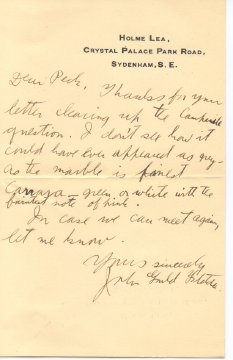 HOLME LEA,
CRYSTAL PALACE PARK ROAD,
SYDENHAM, S. E.
Dear Peck, Thanks for your
letter clearing up the
question. I don't see how it
could have ever appeared as grey
as the marble is finest
Carrara – green or white with the
faintest note of pink.
In case we can meet again,
let me know.
Yours sincerely
John Gould Fletcher